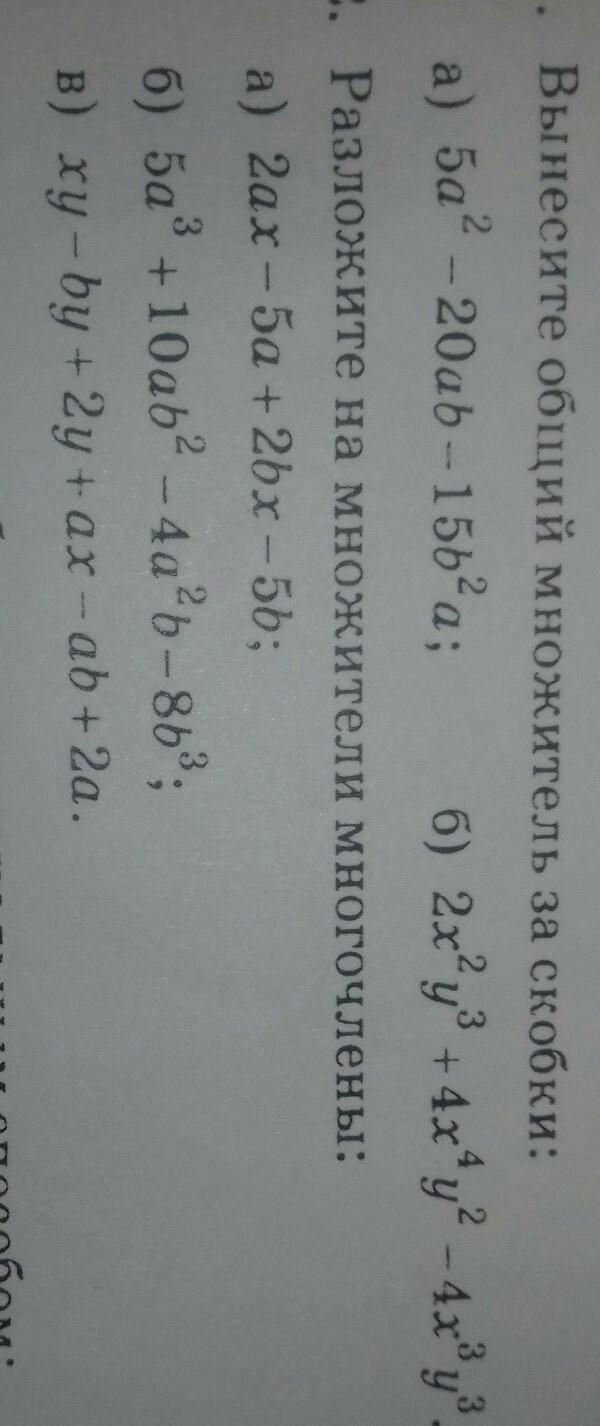 . Вынесите общий множитель за скобки:
а) 5a² − 20ab − 15b²a; б) 2x²y³ + 4x⁴y² − 4x³y³.
. Разложите на множители многочлены:
а) 2ax − 5a + 2bx − 5b;
б) 5a³ + 10ab² − 4a²b − 8b³;
в) xy − by + 2y + ax − ab + 2a.
способом: